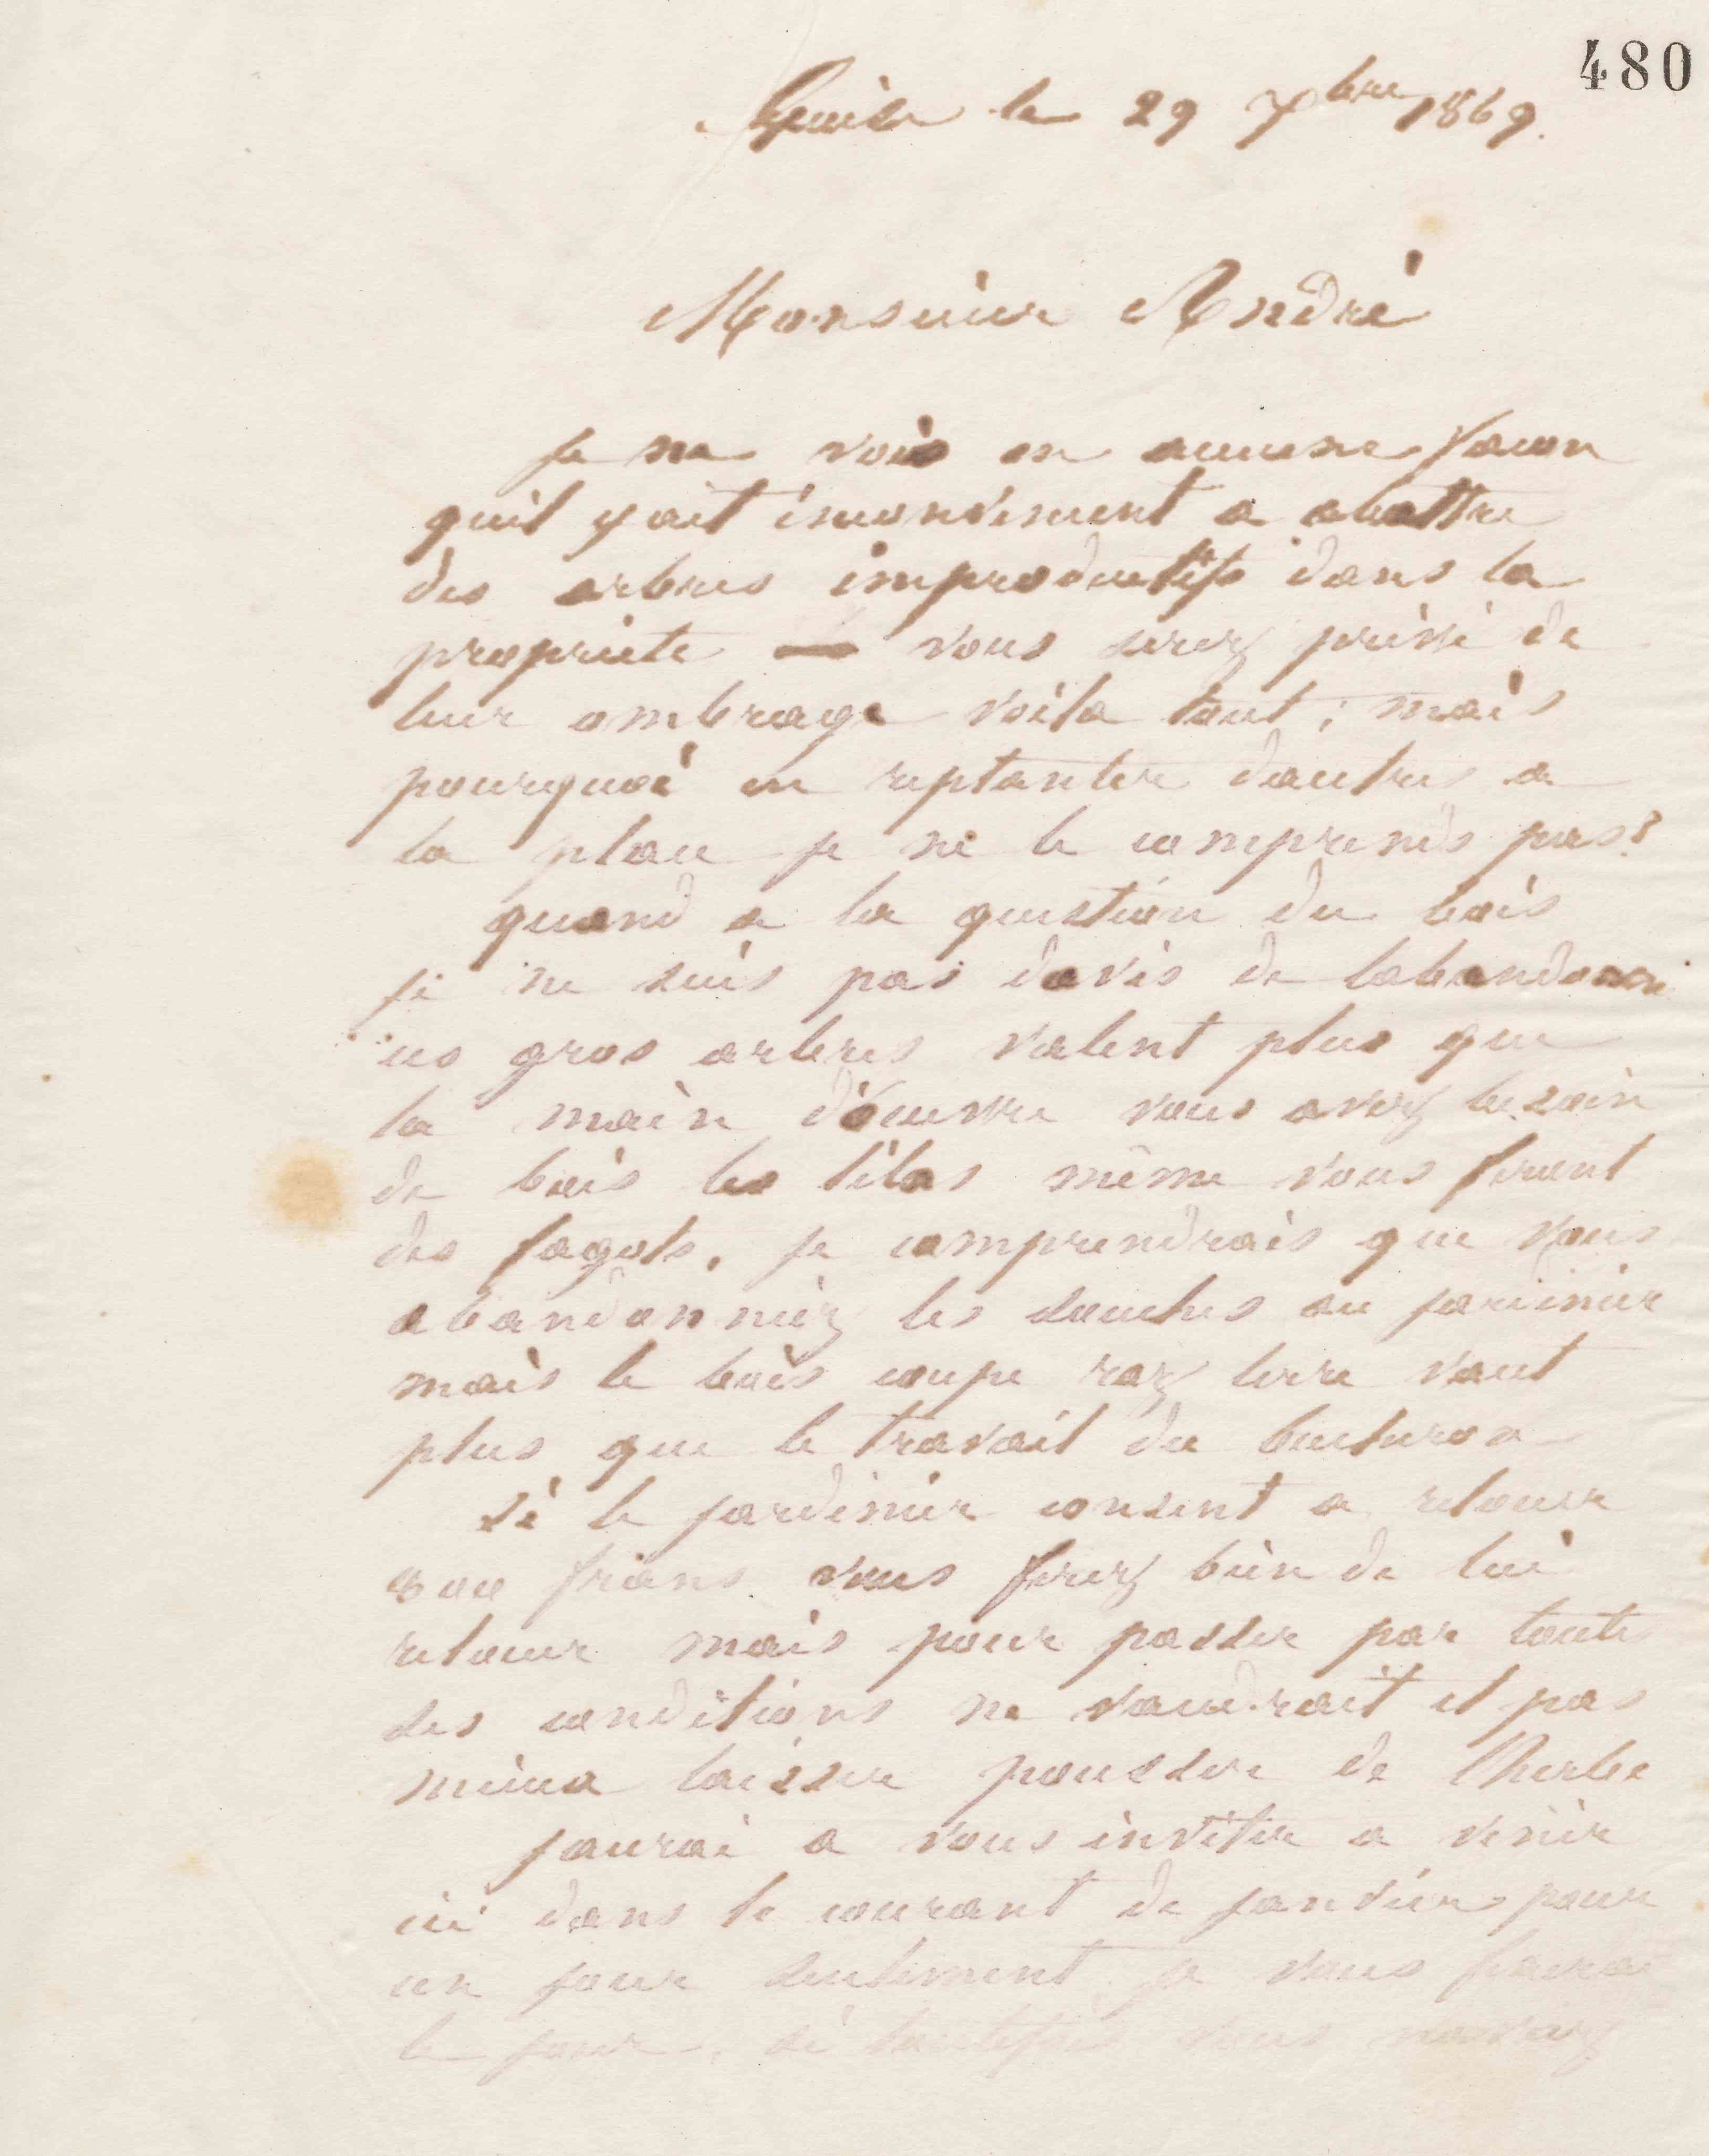 480
Guise le 29 Xbre 1869.
Monsieur André
Je ne vois en aucune facon
quil y ait inconvenient a abattre
des arbres improductifs dans la
propriete vous serez privé de
leur ombrage voila tout ; mais
pourquoi en replanter dautres a
la place je ne le comprends pas?
quand a la question du bois
je ne suis pas davis de labandonner
ces gros arbres valent plus que
la main d'oeuvre vous avez besoin
de bois les lilas même vous feront
des fagots, je comprendrais que vous
abandonniez les souches au jardinier
mais le bois coupe raz terre vaut
plus que le travail du bucheron
si le jardinier consent a relouer
vous ferez bien de lui
relouer mais pour passer par toute
ses conditions ne vaudrait il pas
mieux laisser pousser de lherbe
jaurai a vous inviter a venir
ici dans le courant de janvier pour
un jour seulement je vous
le jour, si toutefois vous